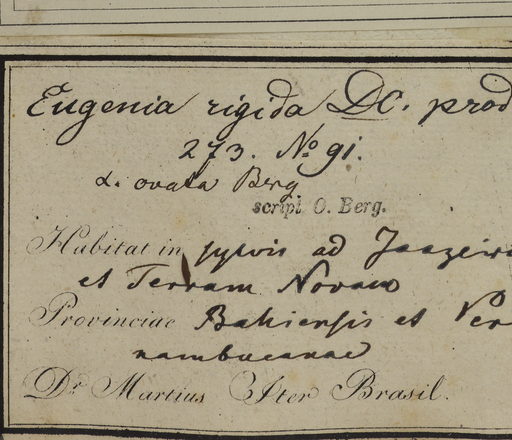 Eugenia rigida DC. prod
273. No 91.
α. ovata Berg
script O. Berg.
Habitat in sylvis ad Joazeiro
et Terram Novam
Provinciae Bahiensis et Per
nambucanae
Dr. Martius Iter Brasil.